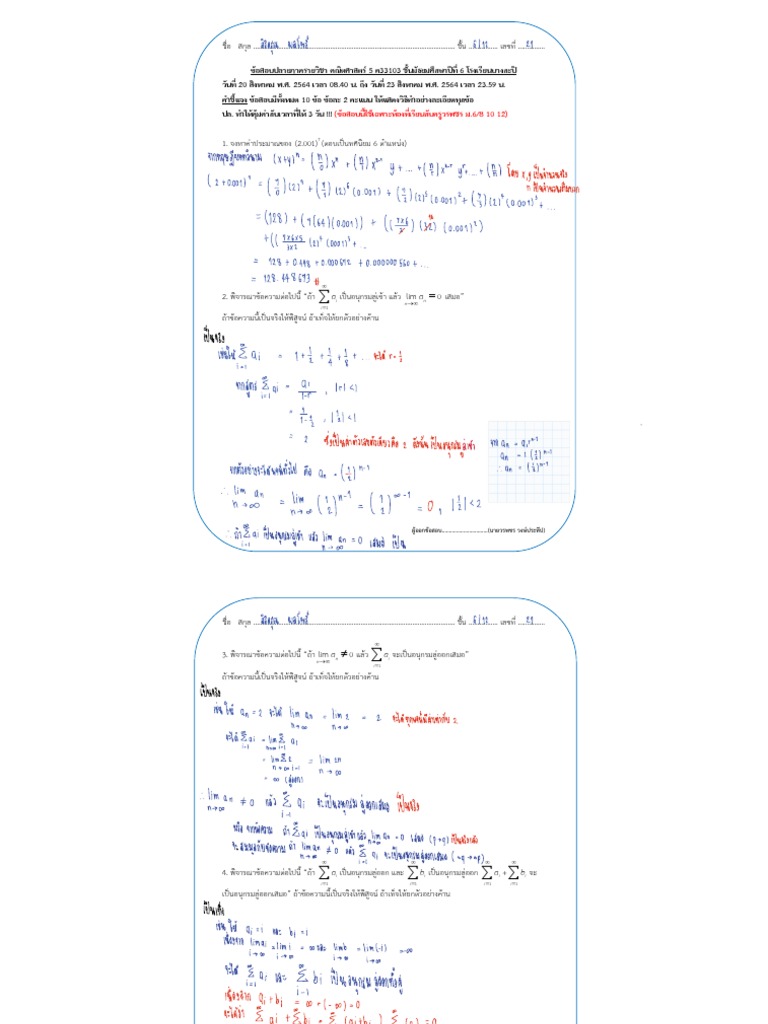 ชื่อ สกุล ชั้น 6/12 เลขที่ 21
ข้อสอบปลายภาครายวิชา คณิตศาสตร์ 5 ค33103 ชั้นมัธยมศึกษาปีที่ 6 โรงเรียนบางกะปิ
วันที่ 20 สิงหาคม พ.ศ. 2564 เวลา 08.40 น. ถึง วันที่ 23 สิงหาคม พ.ศ. 2564 เวลา 23.59 น.
คำชี้แจง ข้อสอบมีทั้งหมด 10 ข้อ ข้อละ 2 คะแนน ให้แสดงวิธีทำอย่างละเอียดทุกข้อ
ปล. ทำให้คุ้มค่ากับเวลาที่ให้ 3 วัน !!! (ข้อสอบนี้ใช้เฉพาะห้องที่เรียนกับครูวรพชร ม.6/8 10 12)
1. จงหาค่าประมาณของ (2.001)⁷ (ตอบเป็นทศนิยม 6 ตำแหน่ง)
(x+y)ⁿ = (n 0) xⁿ + (n 1) xⁿ⁻¹ y + ... + (n r) xⁿ⁻ʳ yʳ + ... + (n n) โดย x,y เป็นจำนวนจริง
n เป็นจำนวนเต็มบวก
(2+0.001)⁷ = (7 0)(2)⁷ + (7 1)(2)⁶(0.001) + (7 2)(2)⁵(0.001)² + (7 3)(2)⁴(0.001)³ + ...
= (128) + (7(64)(0.001)) + ((7×6/2)(32)(0.001)²)
+ ((7×6×5/3×2 (2)⁴ (0.001)³ + ...
= 128 + 0.448 + 0.000672 + 0.000000560 + ...
= 128.448673
2. พิจารณาข้อความต่อไปนี้ "ถ้า ∞∑i=1 aᵢ เป็นอนุกรมลู่เข้า แล้ว lim n→∞ aₙ = 0 เสมอ"
ถ้าข้อความนี้เป็นจริงให้พิสูจน์ ถ้าเท็จให้ยกตัวอย่างค้าน
เป็นจริง
เช่นให้ ∞∑i=1 aᵢ = 1 + 1/2 + 1/4 + 1/8 + ... จะได้ r = 1/2
จากสูตร ∞∑i=1 aᵢ = a₁/1-r , |r| < 1
= 1/1-1/2 , |1/2| < 1
= 2
จาก aₙ = a₁rⁿ⁻¹
aₙ = 1(1/2)ⁿ⁻¹
∴ aₙ = (1/2)ⁿ⁻¹
aₙ = (1/2)ⁿ⁻¹
∴ lim n→∞ aₙ = lim n→∞ (1/2)ⁿ⁻¹ = (1/2)^∞-1 = 0 , |1/2| < 2
ผู้ออกข้อสอบ
∴ ถ้า ∞∑i=1 aᵢ เป็นอนุกรมลู่เข้า แล้ว lim n→∞ aₙ = 0 เสมอ เป็น
ชื่อ สกุล ชั้น 6/12 เลขที่ 21
3. พิจารณาข้อความต่อไปนี้ "ถ้า lim n→∞ aₙ ≠ 0 แล้ว ∞∑i=1 aᵢ จะเป็นอนุกรมลู่ออกเสมอ"
ถ้าข้อความนี้เป็นจริงให้พิสูจน์ ถ้าเท็จให้ยกตัวอย่างค้าน
เป็นจริง
เช่น ให้ aₙ = 2 จะได้ lim n→∞ aₙ = lim n→∞ 2 = 2
จะได้ ∞∑i=1 aᵢ = lim n→∞ ∑i=1 aᵢ
= lim n→∞ ∑i=1 2 = lim n→∞ 2n
= ∞ (ลู่ออก)
∴ lim n→∞ aₙ ≠ 0 แล้ว ∞∑i=1 aᵢ จะเป็นอนุกรมลู่ออกเสมอ เป็นจริง
ถ้า ∞∑i=1 aᵢ เป็นอนุกรมลู่เข้า แล้ว lim n→∞ aₙ = 0 เสมอ (p→q) เป็นจริงแล้ว
จะสมมูลกับข้อความ ถ้า lim n→∞ aₙ ≠ 0 แล้ว ∞∑i=1 aᵢ จะเป็นอนุกรมลู่ออกเสมอ (~q→~p)
4. พิจารณาข้อความต่อไปนี้ "ถ้า ∞∑i=1 aᵢ เป็นอนุกรมลู่ออก และ ∞∑i=1 bᵢ เป็นอนุกรมลู่ออก ∞∑i=1 aᵢ + ∞∑i=1 bᵢ จะ
เป็นอนุกรมลู่ออกเสมอ" ถ้าข้อความนี้เป็นจริงให้พิสูจน์ ถ้าเท็จให้ยกตัวอย่างค้าน
เป็นเท็จ
เช่น ให้ aᵢ = i และ bᵢ = i
เนื่องจาก lim i→∞ aᵢ = lim i→∞ i = ∞ และ lim i→∞ b = lim i→∞ (-i) = -∞
จะได้ ∞∑i=1 aᵢ และ ∞∑i=1 bᵢ เป็นอนุกรมลู่ออกทั้งคู่
เนื่องจาก aᵢ + bᵢ = ∞ + (-∞) = 0
จะได้ว่า ∑ aᵢ + ∑ bᵢ = ∑ (aᵢ+bᵢ) = ∑ (0) = 0